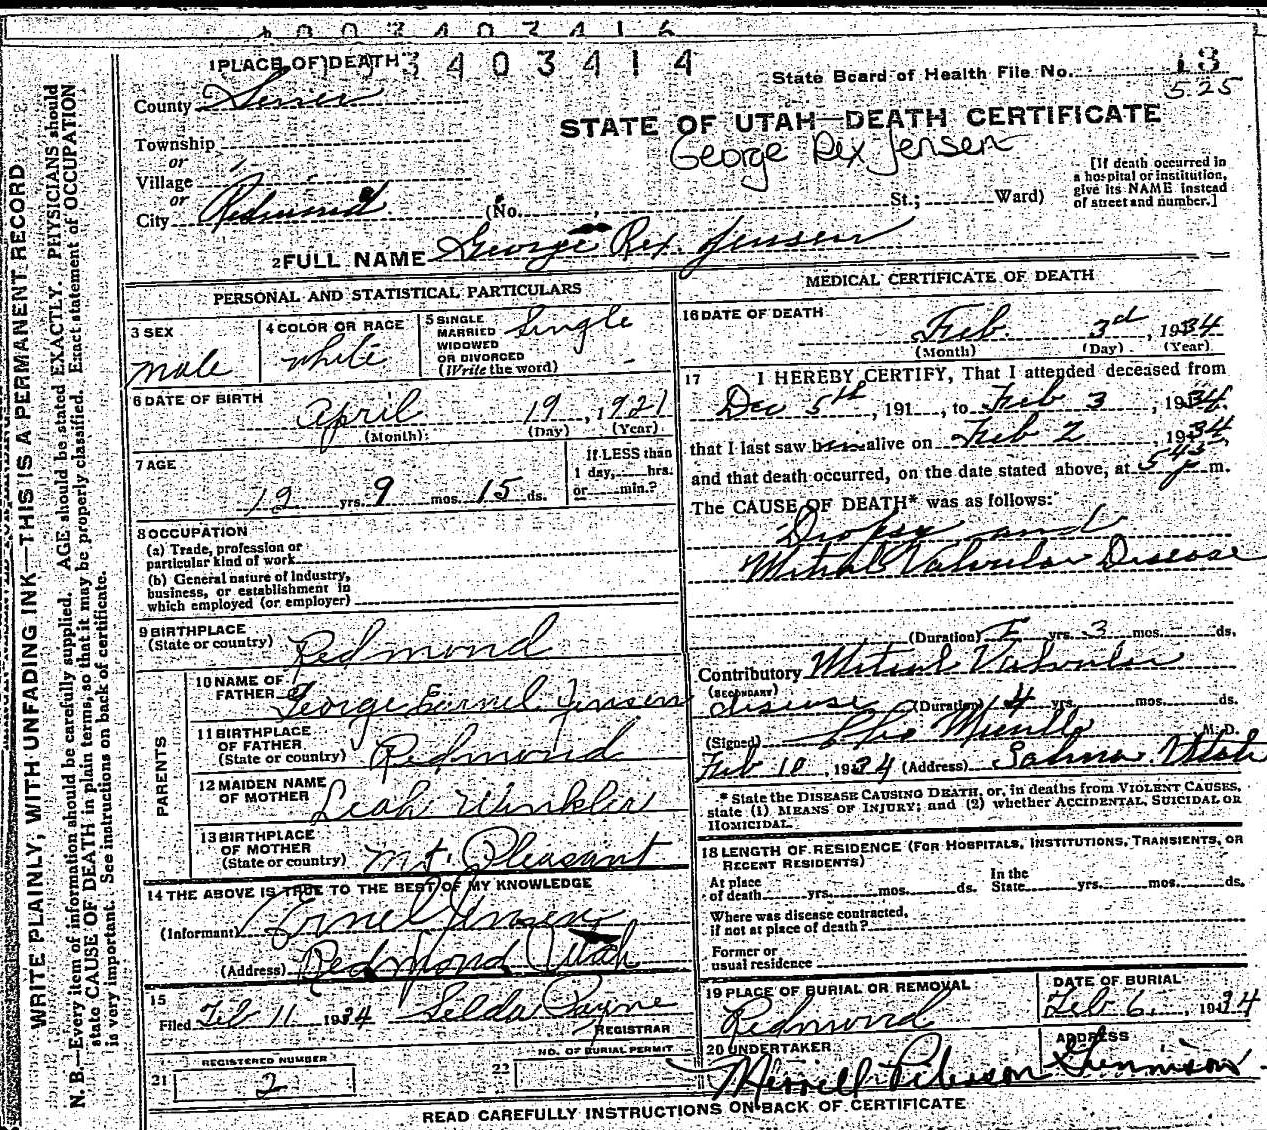 1 PLACE OF DEATH
003403414
State Board of Health File No. 13
525
County Sevier
STATE OF UTAH—DEATH CERTIFICATE
George Rex Jensen
Township
or
Village
or
City Redmond (No. , St.; Ward)
[If death occurred in
a hospital or institution,
give its NAME instead
of street and number.]
2 FULL NAME George Rex Jensen
PERSONAL AND STATISTICAL PARTICULARS
3 SEX
male
4 COLOR OR RACE
white
5 SINGLE
MARRIED
WIDOWED
OR DIVORCED
(Write the word)
Single
6 DATE OF BIRTH
April 19, 1921
(Month) (Day) (Year)
7 AGE
12 yrs. 9 mos. 15 ds.
If LESS than
1 day, hrs.
or min.?
8 OCCUPATION
(a) Trade, profession or
particular kind of work
(b) General nature of industry,
business, or establishment in
which employed (or employer)
9 BIRTHPLACE
(State or country) Redmond
PARENTS
10 NAME OF
FATHER George Ernel Jensen
11 BIRTHPLACE
OF FATHER
(State or country) Redmond
12 MAIDEN NAME
OF MOTHER Leah Winkler
13 BIRTHPLACE
OF MOTHER
(State or country) Mt. Pleasant
14 THE ABOVE IS TRUE TO THE BEST OF MY KNOWLEDGE
(Informant) Ernel Jensen
(Address) Redmond Utah
15
Filed Feb 11 1934 Selda Payne
REGISTRAR
REGISTERED NUMBER
21 2
NO. OF BURIAL PERMIT
22
MEDICAL CERTIFICATE OF DEATH
16 DATE OF DEATH
Feb. 3d, 1934
(Month) (Day) (Year)
17 I HEREBY CERTIFY, That I attended deceased from
Dec 5th, 191 , to Feb 3, 1934
that I last saw him alive on Feb 2, 1934
and that death occurred, on the date stated above, at 545 p m.
The CAUSE OF DEATH* was as follows:
Dropsy and
Mitral Valvular Disease
(Duration) yrs. 3 mos. ds.
Contributory Mitral Valvular
(SECONDARY)
disease (Duration) 4 yrs. mos. ds.
(Signed) M. D.
Feb 10, 1934 (Address) Salina Utah
* State the DISEASE CAUSING DEATH, or, in deaths from VIOLENT CAUSES,
state (1) MEANS OF INJURY; and (2) whether ACCIDENTAL, SUICIDAL OR
HOMICIDAL.
18 LENGTH OF RESIDENCE (FOR HOSPITALS, INSTITUTIONS, TRANSIENTS, OR
RECENT RESIDENTS)
At place
of death yrs. mos. ds.
In the
State yrs. mos. ds.
Where was disease contracted,
if not at place of death?
Former or
usual residence
19 PLACE OF BURIAL OR REMOVAL
Redmond
DATE OF BURIAL
Feb 6, 1934
20 UNDERTAKER
Merrell Peterson
ADDRESS
Gunnison
READ CAREFULLY INSTRUCTIONS ON BACK OF CERTIFICATE
WRITE PLAINLY, WITH UNFADING INK—THIS IS A PERMANENT RECORD
N. B.—Every item of information should be carefully supplied. AGE should be stated EXACTLY. PHYSICIANS should
state CAUSE OF DEATH in plain terms, so that it may be properly classified. Exact statement of OCCUPATION
is very important. See instructions on back of certificate.